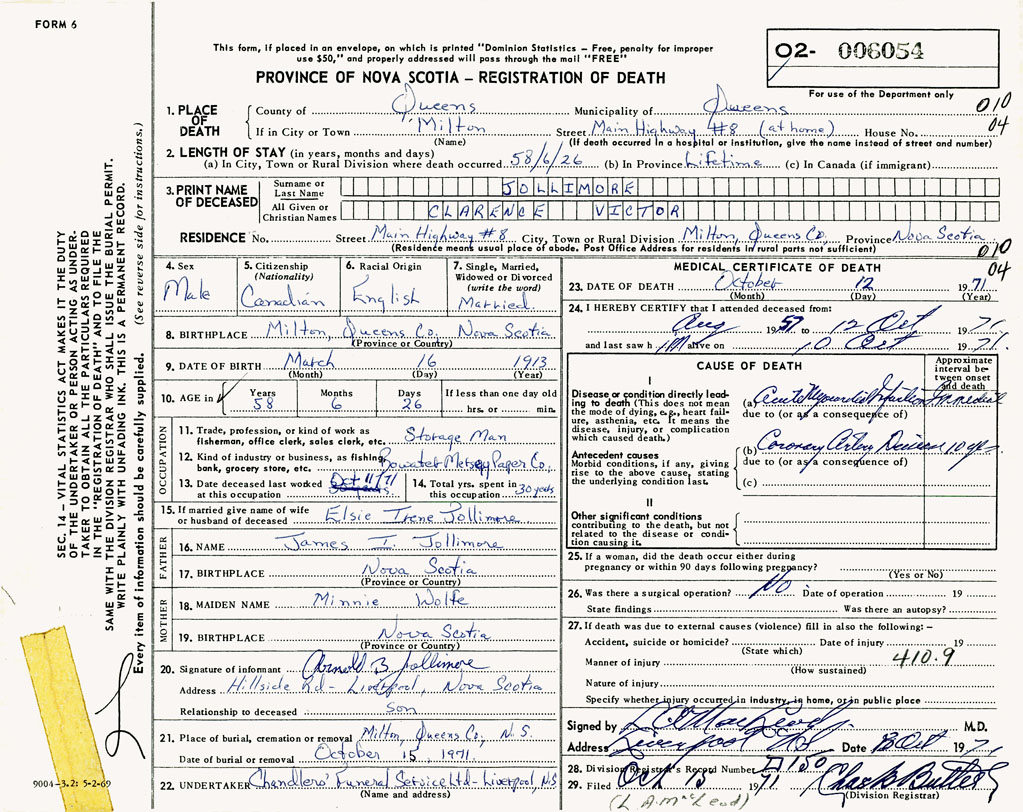 FORM 6
This form, if placed in an envelope, on which is printed "Dominion Statistics – Free, penalty for improper
use $50," and properly addressed will pass through the mail "FREE"
PROVINCE OF NOVA SCOTIA – REGISTRATION OF DEATH
02- 006054
For use of the Department only
1. PLACE OF DEATH
County of Queens Municipality of Queens 010
If in City or Town Milton Street Main Highway #8 (at home) House No. 04
(Name) (If death occurred in a hospital or institution, give the name instead of street and number)
2. LENGTH OF STAY (in years, months and days)
(a) In City, Town or Rural Division where death occurred 58/6/26 (b) In Province Lifetime (c) In Canada (if immigrant)
3. PRINT NAME OF DECEASED
Surname or Last Name JOLLIMORE
All Given or Christian Names CLARENCE VICTOR
RESIDENCE No. Street Main Highway #8 City, Town or Rural Division Milton, Queens Co. Province Nova Scotia
(Residence means usual place of abode. Post Office Address for residents in rural parts not sufficient) 010
04
4. Sex Male
5. Citizenship (Nationality) Canadian
6. Racial Origin English
7. Single, Married, Widowed or Divorced (write the word) Married
8. BIRTHPLACE Milton, Queens Co. Nova Scotia
(Province or Country)
9. DATE OF BIRTH March 16 1913
(Month) (Day) (Year)
10. AGE in Years 58 Months 6 Days 26 If less than one day old hrs. or min.
OCCUPATION
11. Trade, profession, or kind of work as
fisherman, office clerk, sales clerk, etc. Storage Man
12. Kind of industry or business, as fishing,
bank, grocery store, etc. Bowater Mersey Paper Co.
13. Date deceased last worked
at this occupation Oct 11/71
14. Total yrs. spent in
this occupation 30 years
15. If married give name of wife
or husband of deceased Elsie Irene Jollimore
FATHER
16. NAME James I. Jollimore
17. BIRTHPLACE Nova Scotia
(Province or Country)
MOTHER
18. MAIDEN NAME Minnie Wolfe
19. BIRTHPLACE Nova Scotia
(Province or Country)
20. Signature of informant Arnold B Jollimore
Address Hillside Rd - Liverpool, Nova Scotia
Relationship to deceased son
21. Place of burial, cremation or removal Milton, Queens Co., N.S.
Date of burial or removal October 15, 1971
22. UNDERTAKER Chandlers' Funeral Service Ltd - Liverpool, N.S.
(Name and address)
MEDICAL CERTIFICATE OF DEATH
23. DATE OF DEATH October 12 1971
(Month) (Day) (Year)
24. I HEREBY CERTIFY that I attended deceased from:
Aug 1957 to 12 Oct 1971
and last saw him alive on 10 Oct 1971.
CAUSE OF DEATH
Approximate interval between onset and death
I
Disease or condition directly leading to death (This does not mean
the mode of dying, e.g., heart failure, asthenia, etc. It means the
disease, injury, or complication
which caused death.)
(a) Acute Myocardial Infarction Immediate
due to (or as a consequence of)
Antecedent causes
Morbid conditions, if any, giving
rise to the above cause, stating
the underlying condition last.
(b) Coronary Artery Disease 10 yrs
due to (or as a consequence of)
(c)
II
Other significant conditions
contributing to the death, but not
related to the disease or condition causing it.
25. If a woman, did the death occur either during
pregnancy or within 90 days following pregnancy?
(Yes or No)
26. Was there a surgical operation? No Date of operation 19
State findings Was there an autopsy?
27. If death was due to external causes (violence) fill in also the following: –
Accident, suicide or homicide? Date of injury 19
(State which)
Manner of injury 410.9
(How sustained)
Nature of injury
Specify whether injury occurred in industry, in home, or in public place
Signed by L A MacLeod M.D.
Address Liverpool NS Date 13 Oct 1971
28. Division Registrar's Record Number 150
29. Filed Oct 1971
(Division Registrar)
(L.A. MacLeod)
SEC. 14 – VITAL STATISTICS ACT MAKES IT THE DUTY
OF THE UNDERTAKER OR PERSON ACTING AS UNDERTAKER TO OBTAIN ALL THE PARTICULARS REQUIRED
IN THE "REGISTRATION OF DEATH" AND TO FILE THE
SAME WITH THE DIVISION REGISTRAR WHO SHALL ISSUE THE BURIAL PERMIT.
WRITE PLAINLY WITH UNFADING INK. THIS IS A PERMANENT RECORD.
Every item of information should be carefully supplied. (See reverse side for instructions.)
9004-3.2: 5-2-69